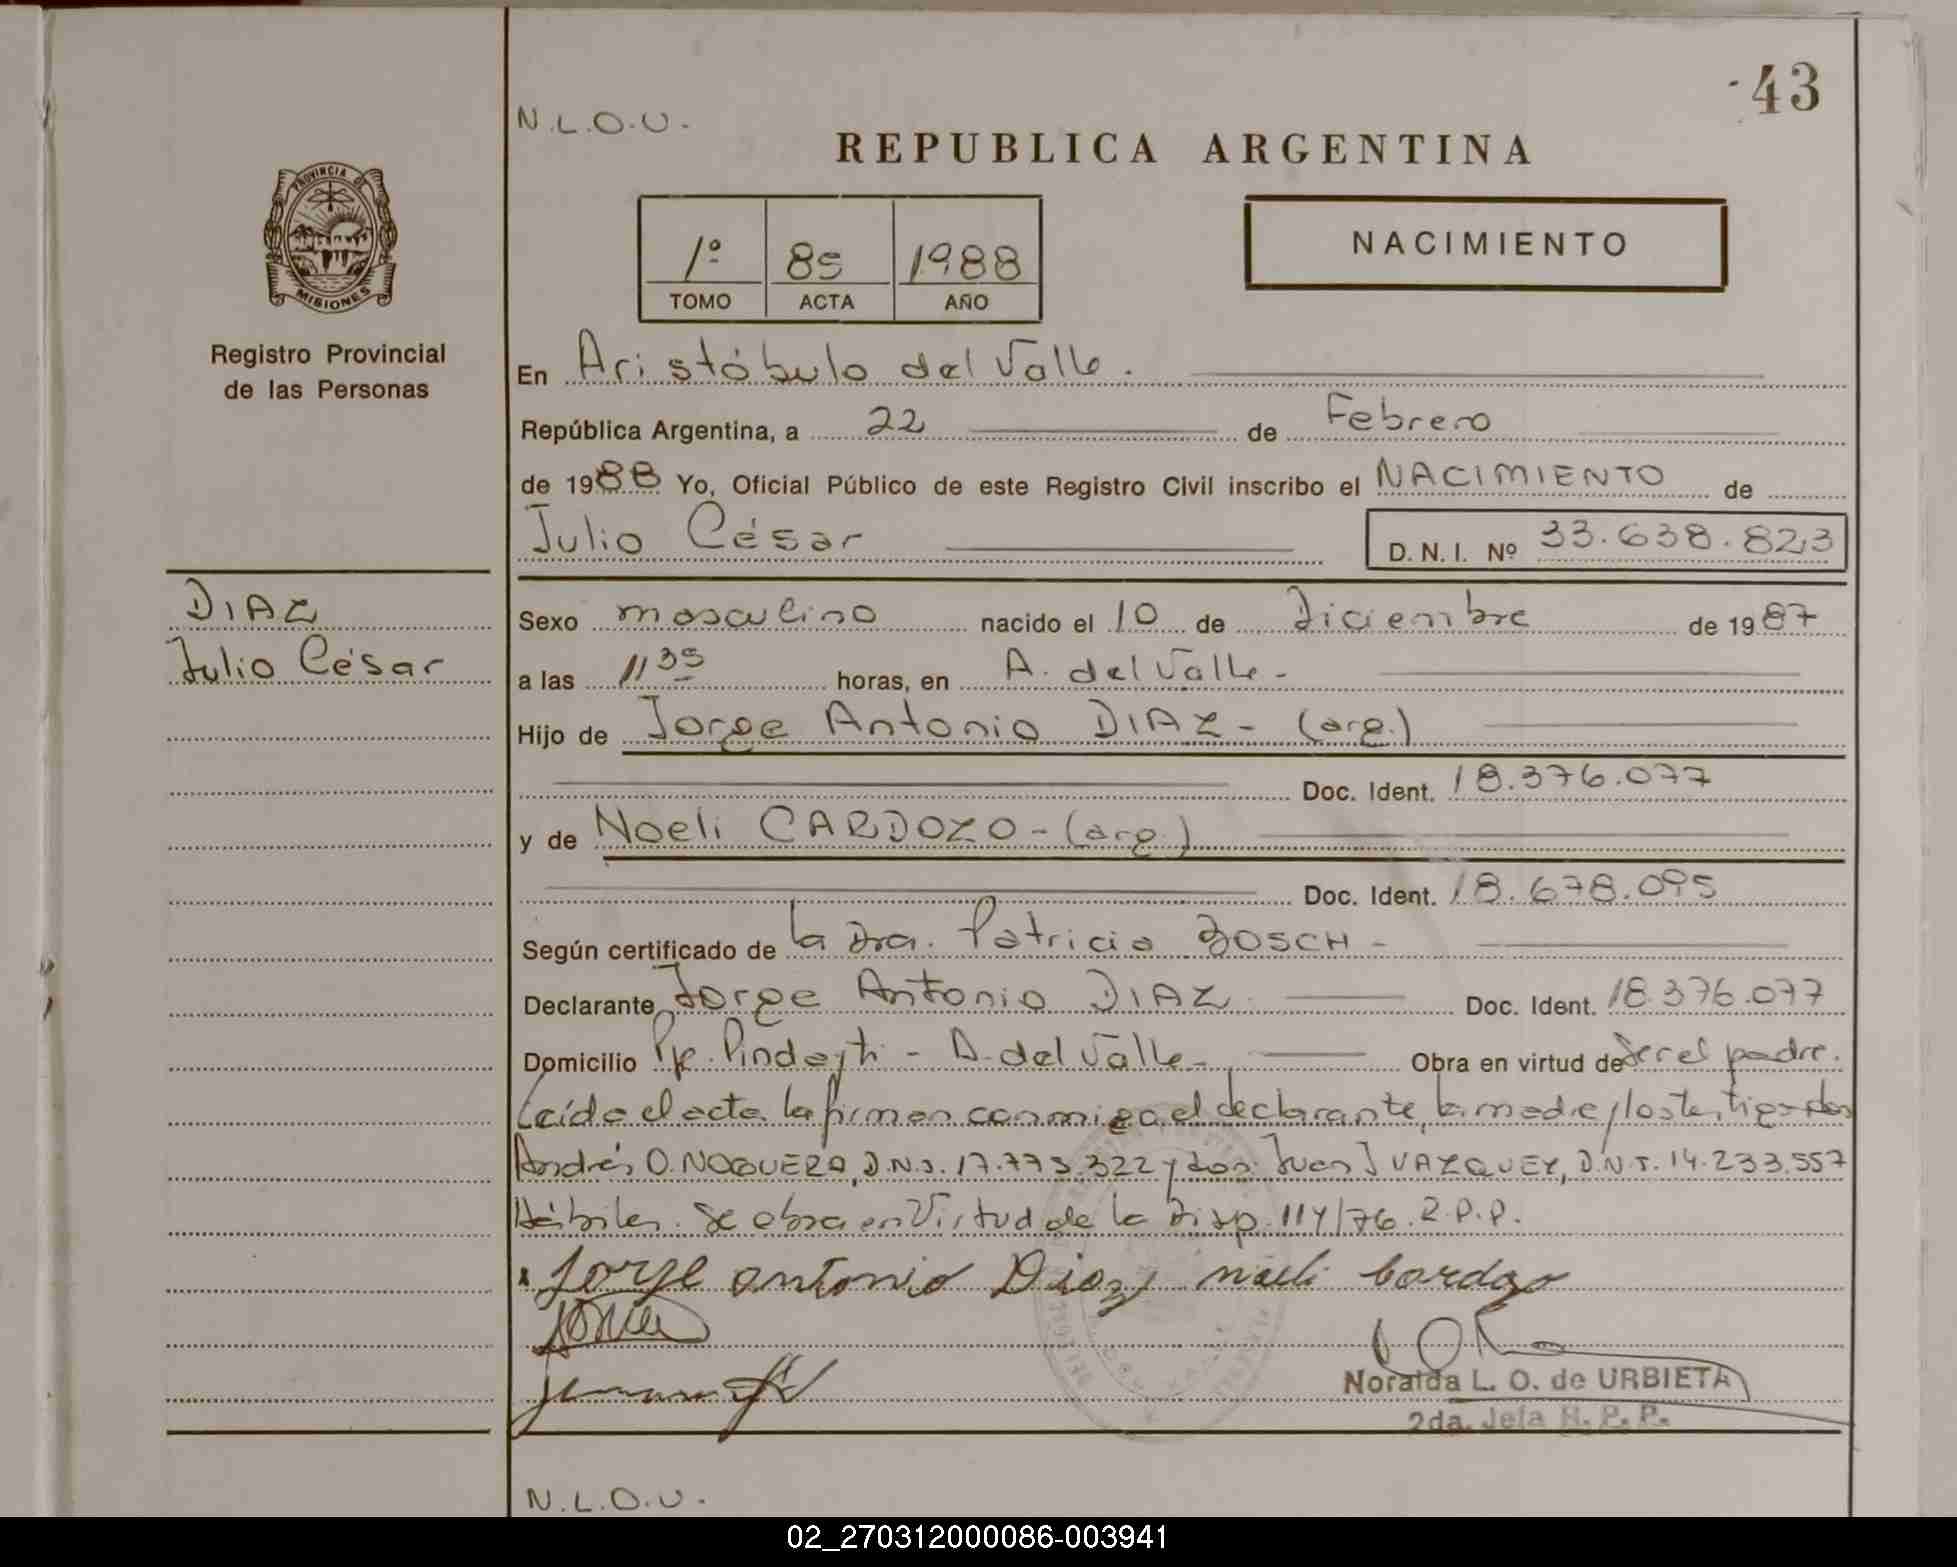 43
N.L.O.U.
REPUBLICA ARGENTINA
PROVINCIA DE
MISIONES
1º 85 1988
TOMO ACTA AÑO
NACIMIENTO
Registro Provincial
de las Personas
En Aristóbulo del Valle.
República Argentina, a 22 de Febrero
de 1988 Yo, Oficial Público de este Registro Civil inscribo el NACIMIENTO de
Julio César D.N.I. Nº 33.638.823
DIAZ
Julio César
Sexo masculino nacido el 10 de Diciembre de 1987
a las 11 35 horas, en A. del Valle-
Hijo de Jorge Antonio DIAZ - (arg.)
Doc. Ident. 18.376.077
y de Noeli CARDOZO - (arg.)
Doc. Ident. 18.678.095
Según certificado de la Dra. Patricia BOSCH -
Declarante Jorge Antonio DIAZ. Doc. Ident. 18.376.077
Domicilio Pje. Pindayti - A. del Valle - Obra en virtud de Ser el padre.
Leída el acta la firman conmigo el declarante, la madre y los testigos don
Andrés O. NOGUERA, D.N.I. 17.773.322 y don Juan J VAZQUEZ, D.N.I. 14.233.557
Hábiles. Se obra en Virtud de la Disp. 114/76. R.P.P.
Jorge antonio Diaz noeli Cardozo
Noralda L. O. de URBIETA
2da. Jefa R. P. P.
N.L.O.U.
02_270312000086-003941